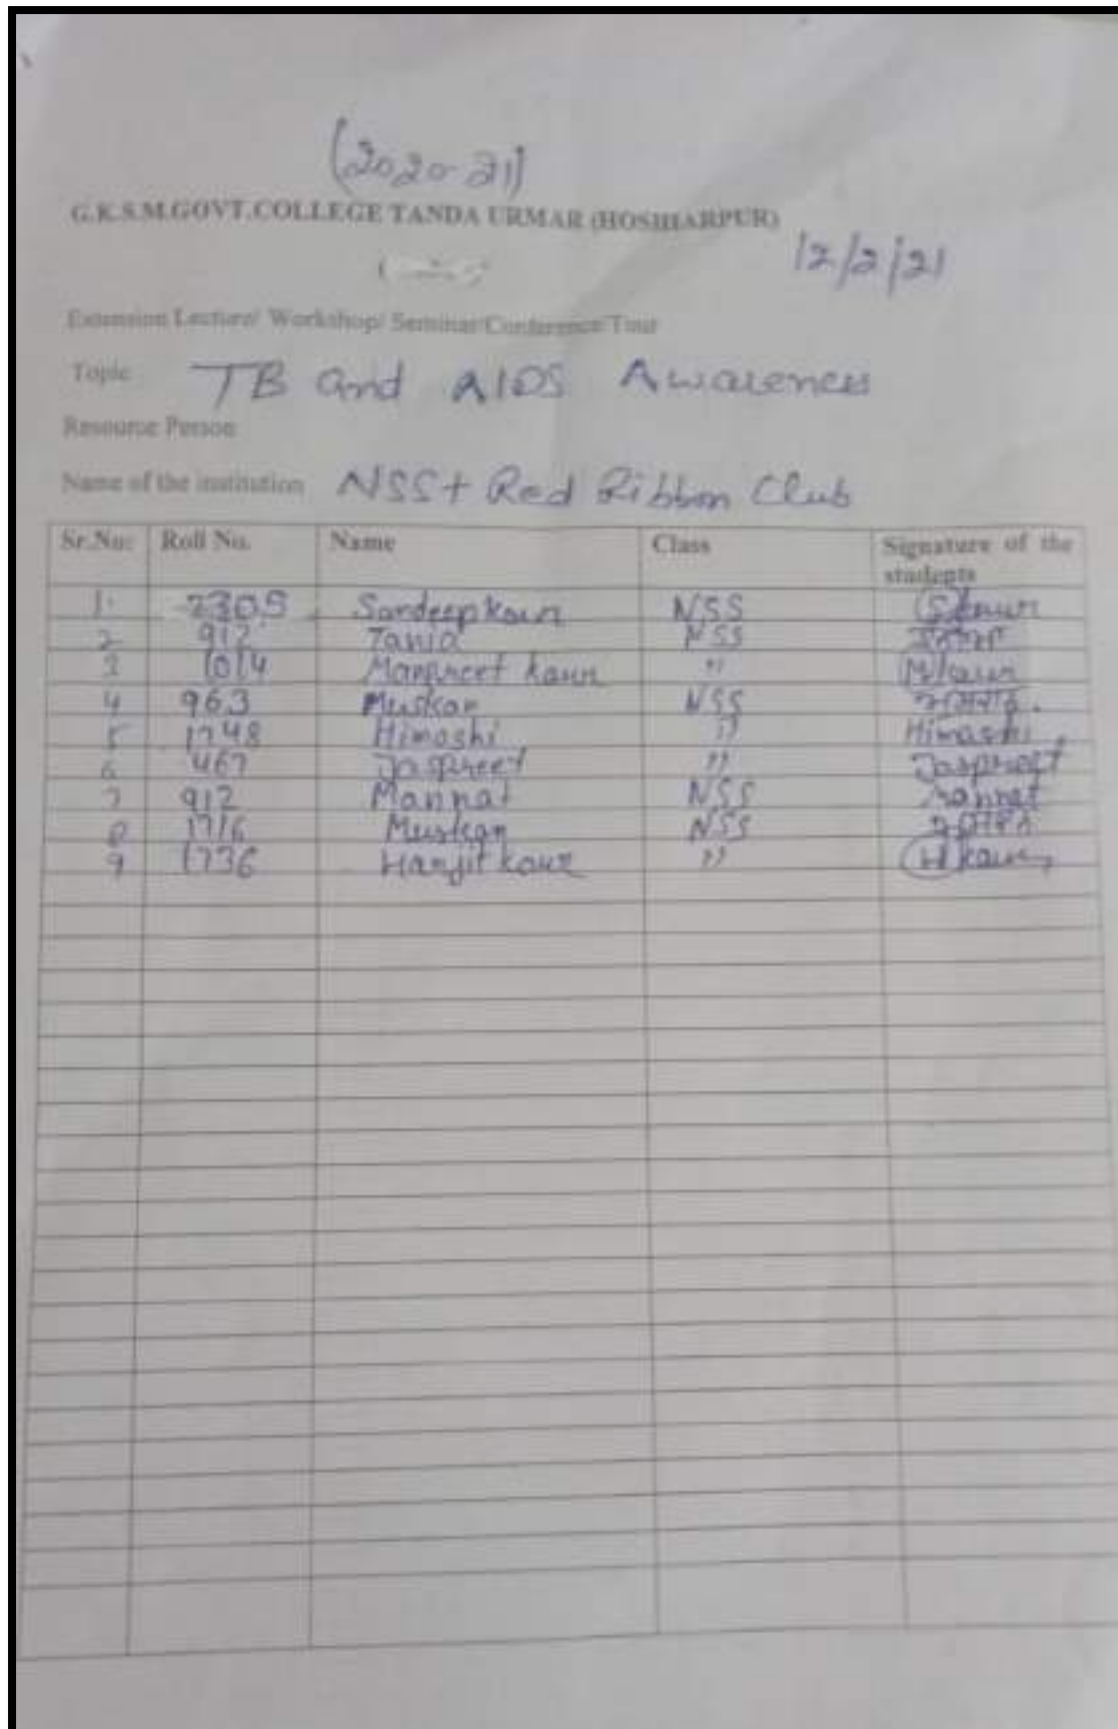 (2020-21)
G.K.S.M.GOVT.COLLEGE TANDA URMAR (HOSHIARPUR)
12/2/21
Extension Lecture/ Workshop/ Seminar/Conference/Tour
Topic TB and AIDS Awareness
Resource Person
Name of the institution NSS+ Red Ribbon Club
Sr.No: Roll No. Name Class Signature of the students
1. 2305 Sandeep kaur NSS S kaur
2 912 Tania NSS
3 1014 Manpreet kaur " M kaur
4 963 Muskan NSS
5 1748 Himashi " Himashi
6 467 Jaspreet " Jaspreet
7 912 Mannat NSS Mannat
8 1716 Muskan NSS
9 1736 Harjit kaur " H kaur